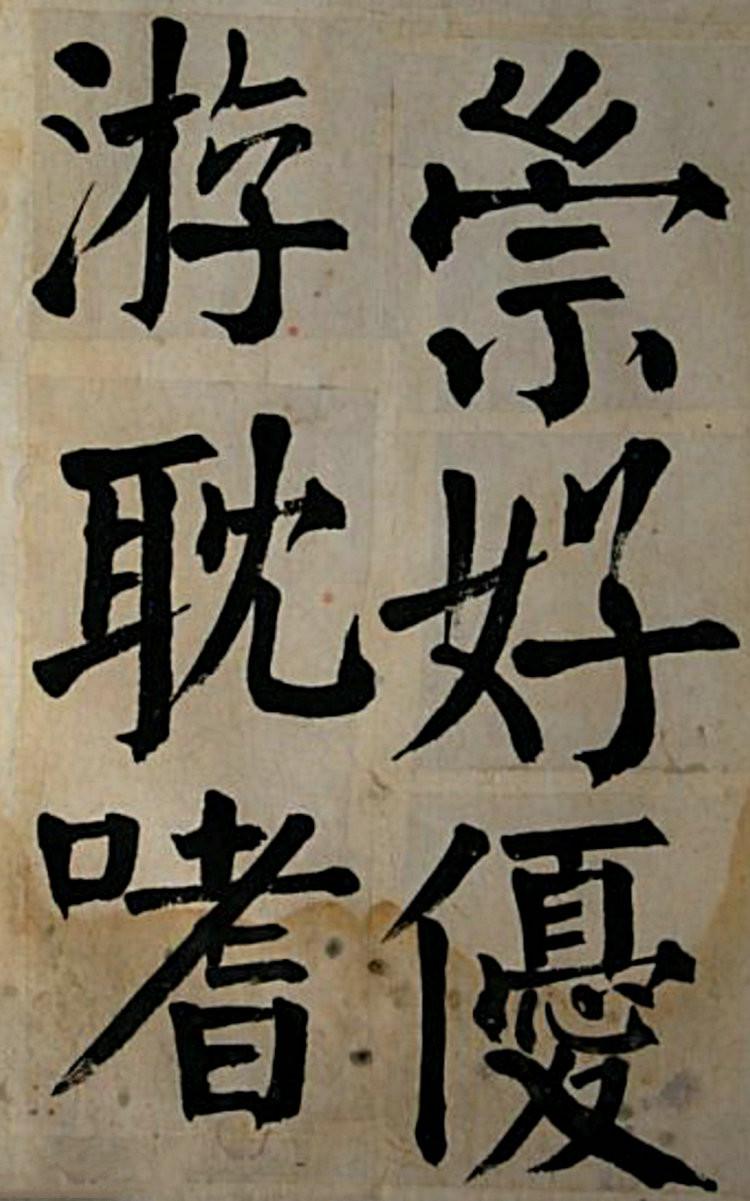 崇好優
游耽嗜